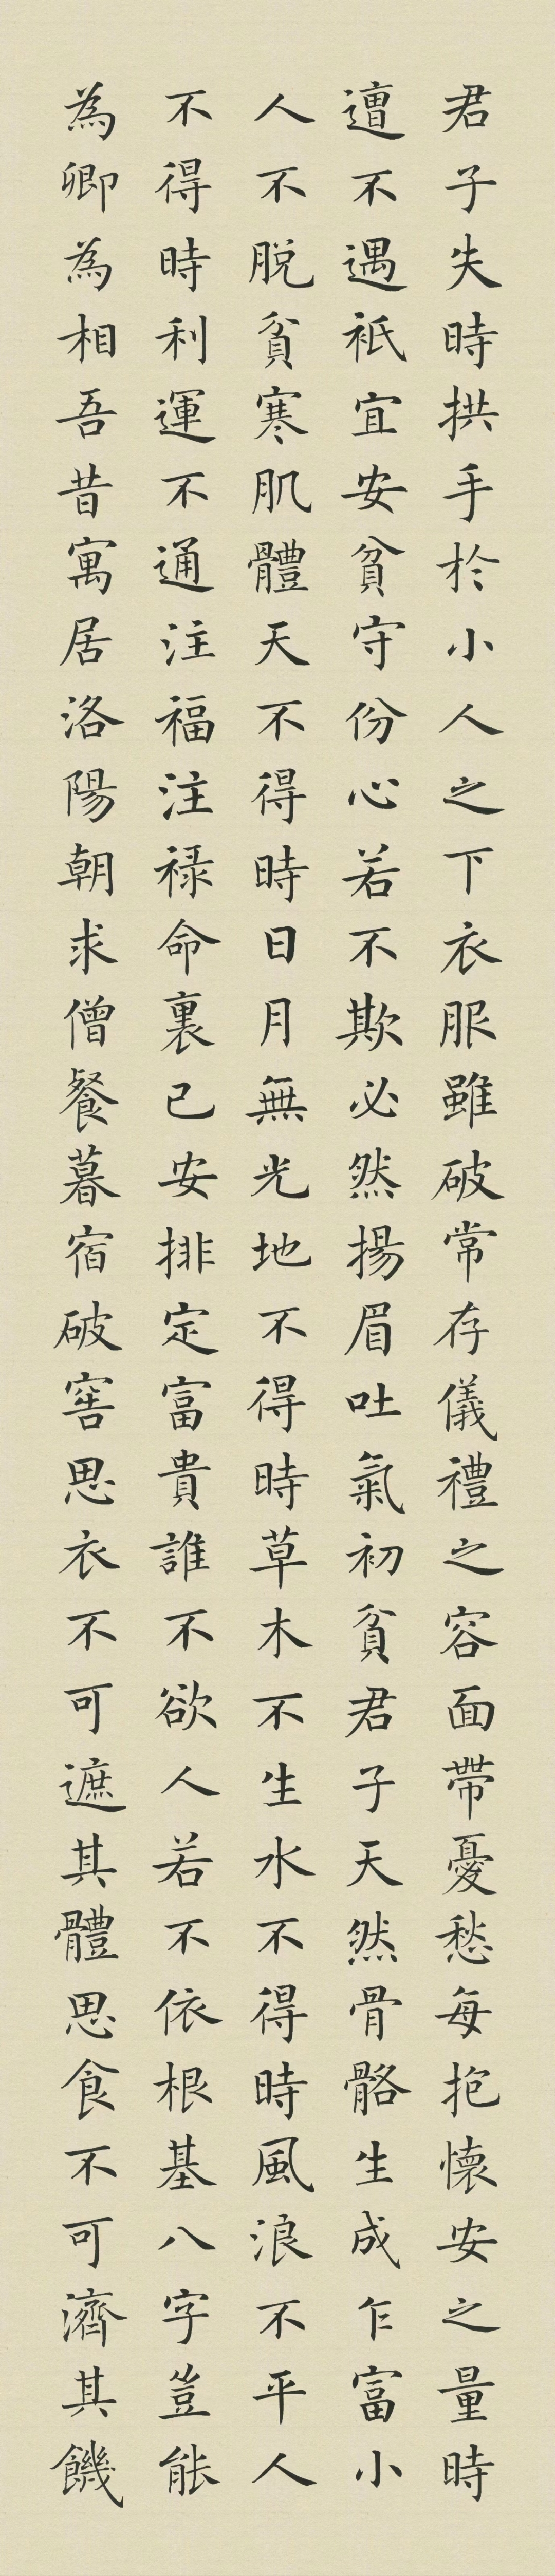 君子失時拱手於小人之下衣服雖破常存儀禮之容面帶憂愁每抱懷安之量時
遭不遇衹宜安貧守份心若不欺必然揚眉吐氣初貧君子天然骨骼生成乍富小
人不脫貧寒肌體天不得時日月無光地不得時草木不生水不得時風浪不平人
不得時利運不通注福注祿命裏已安排定富貴誰不欲人若不依根基八字豈能
為卿為相吾昔寓居洛陽朝求僧餐暮宿破窖思衣不可遮其體思食不可濟其饑